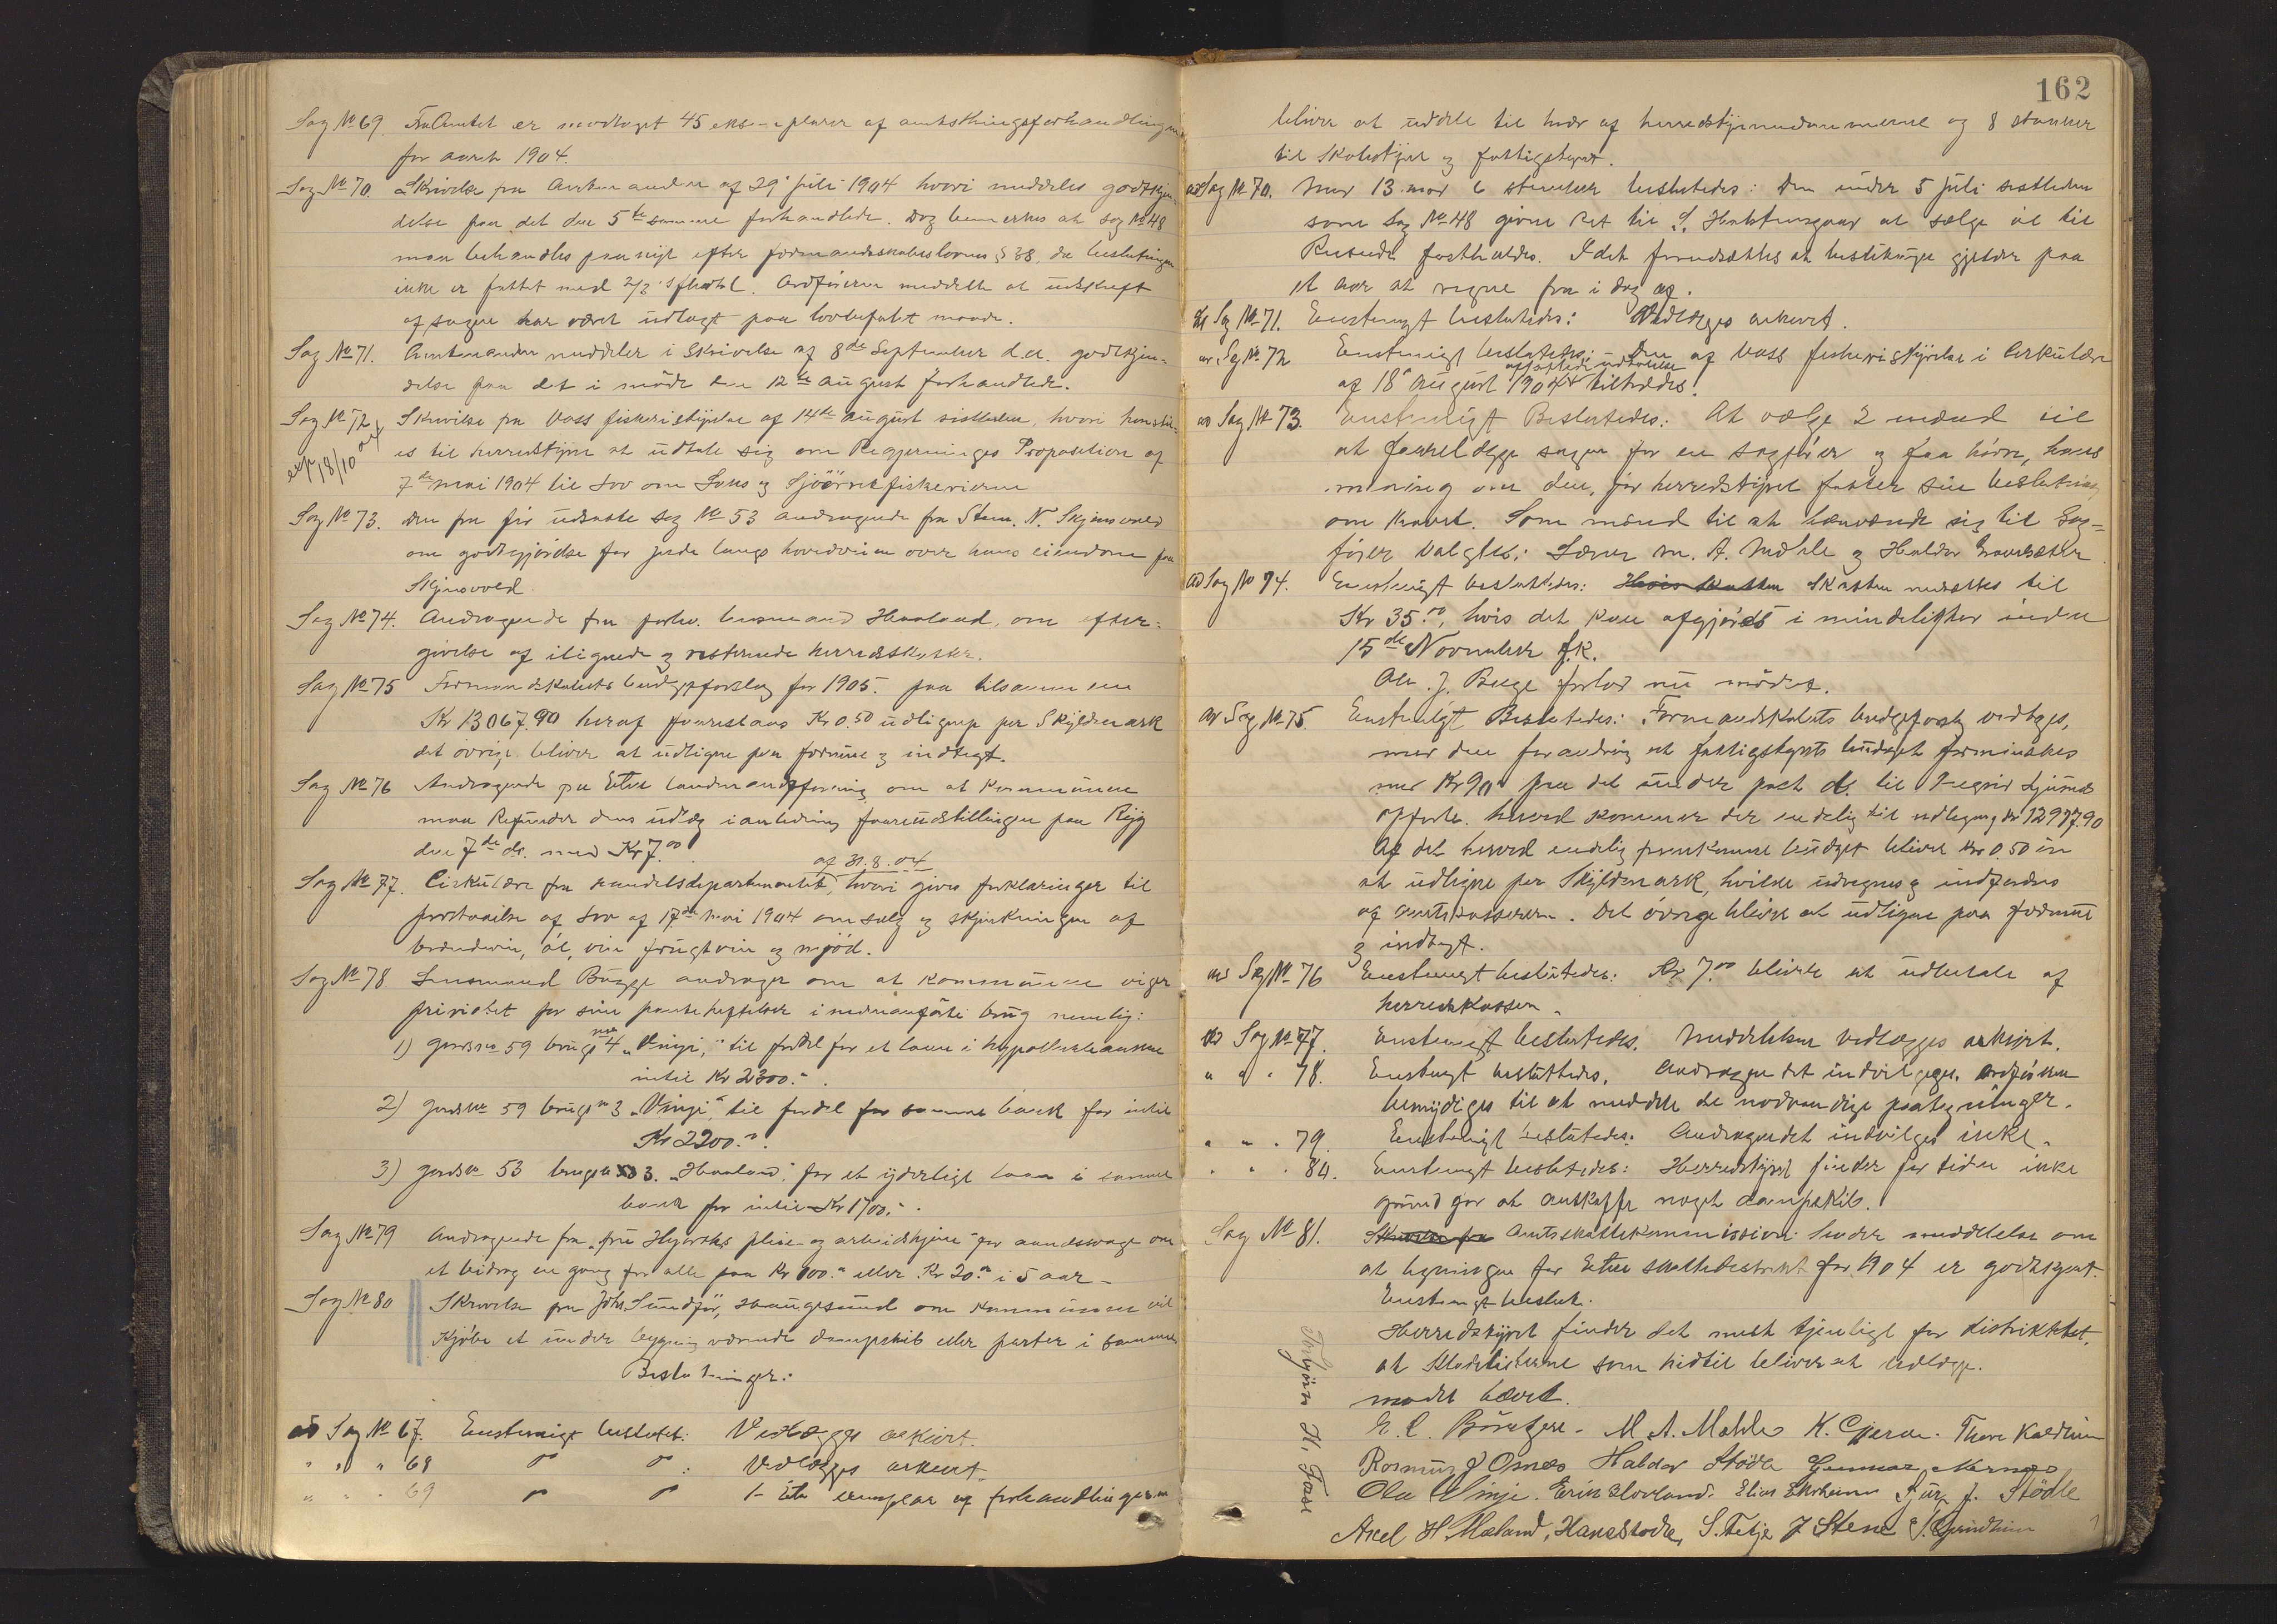 Sag № 69. Fra Amtet er modtaget 45 eksemplarer af amtsthingsforhandlingerne
for aaret 1904.
Sag № 70. Skrivelse fra Amtmanden af 29de Juli 1904 hvori meddeles godkjen-
delse paa det den 5te samme forhandlede. Dog bemerkes at sag № 48
maa behandles paa nyt efter formandskabslovens § 38, da beslutningen
ikke er fattet med 2/3 flertal. Ordføreren meddelte at udskrift
af sagen har været udlagt paa lovbefalet maade.
Sag № 71. Amtmanden meddeler i Skrivelse af 8de September d.a. godkjen-
delse paa det i møde den 12te august forhandlede.
Sag № 72 Skrivelse fra Voss fiskeristyrelse af 14de august sistleden, hvori henstil-
exp 18/10 04
es til herredstyret at udtale sig om Regjeringens Proposition af
7de mai 1904 til Lov om Laks og Sjøørretfiskerierne
Sag № 73. Den fra før udsatte sag № 53 andragende fra Sten. N. Skjensvold
om godtgjørelse for jorde langs hovedveien over hans eiendom paa
Skjensvold
Sag № 74. Andragende fra forhv. lensmand Haaland, om efter-
givelse af ilignede og resterende herredskatter.
Sag № 75 Formandskabets budgetforslag for 1905. paa tilsammen
Kr 13067.90 heraf foreslaaes Kr 0.50 udlignet per Skyldmark
det øvrige bliver at udligne paa formue og indtægt.
Sag № 76 Andragende fra Etne landmandsforening om at Kommunen
maa Refundere dens udlæg i anledning faareudstillingen paa Rygg
den 7de ds. med Kr 7.00
af 31.8.04
Sag № 77. Cirkulære fra handelsdepartementet, hvori gives forklaringer til
forstaaelse af Lov af 17de mai 1904 om salg og skjenkningen af
brændevin, øl, vin frugtvin og mjød.
Sag № 78 Lensmand Bugge andrager om at kommunen viger
prioritet for sine pantehæftelser i nedenanførte brug nemlig:
1) gaardsno 59 brugsno 4 „Vinje," til fordel for et laan i hypothekbanken
indtil Kr 2300.-
2) gaardsno 59 brugsno 3 „Vinje", til fordel for samme bank for indtil
Kr 2200.-
3) gaardsno 53 brugsno 3. „Haaland", for et yderligt laan i samme
bank for indtil Kr 1700.-
Sag № 79 Andragende fra „fru pleie- og arbeidshjem" for aandssvage om
et bidrag en gang for alle paa Kr 100.- eller Kr 20.- i 5 aar -
Sag № 80 Skrivelse fra Johs Sundfør, Haugesund om kommunen vil
Kjøbe et under bygning værende dampskib eller parter i samme
Beslutninger:
ad Sag № 67. Enstemigt besluttet: Vedlægges arkivet.
" " " 68 " " : Vedlægges arkivet.
" " " 69 " " 1 - Et exemplar af forhandlingerne
162
bliver at uddele til hver af herredstyrmedlemmerne og 8 stykker
til Skolestyret og fattigstyret.
ad Sag № 70. Med 13 mod 6 stemmer besluttedes: Den under 5 juli sistleden
som Sag № 48 givne ret til S. at sælge øl til
Reisende fastholdes. Idet forudsættes at beslutningen gjelder paa
et aar at regne fra i dag af.
ad Sag № 71. Enstemigt besluttedes: Vedlægges arkivet.
ad Sag № 72 Enstemigt besluttedes: Den af Voss fiskeristyrelse i Cirkulære
af 18de August 1904 tiltrædes.
ad Sag № 73. Enstemigt Besluttedes: At vælge 2 mænd til
at forelægge sagen for en sagfører og faa høre, hans
mening om den, før herredstyret fatter sin beslutning
om kravet. Som mænd til at henvende sig til Sag-
fører valgtes: Lærer M. A. Mæhle og Haldor
ad Sag № 74. Enstemigt besluttedes: Hvis skatten Skatten nedsættes til
Kr 35.00, hvis det kan afgjøres i mindelighed inden
15de November f.K.
J. Bugge forlod nu mødet.
ad Sag № 75. Enstemigt Besluttedes: Formandskabets budgetforslag vedtages,
med den forandring at fattigstyrets budget formindskes
med Kr 90.- paa det under post d. til
opførte. herved kommer der endelig til udligning Kr 12977.90
Af det herved endelig fremkomne budget bliver Kr 0.50 øre
at udligne per Skyldmark, hvilke udregnes og indfordres
af amtskassereren. Det øvrige bliver at udligne paa formue
og indtægt.
ad Sag № 76 Enstemigt besluttedes: Kr 7.00 bliver at udbetale af
herredskassen.
ad Sag № 77. Enstemigt besluttedes. Meddelelsen vedlægges arkivet.
" " " 78. Enstemigt besluttedes. Andragendet indvilges, ordføreren
bemyndiges til at meddele de nødvendige paategninger.
" " " 79. Enstemigt besluttedes: Andragendet indvilges ikke.
" " " 80. Enstemigt besluttedes: Herredstyret finder for tiden ikke
grund for at anskaffe noget dampskib.
Sag № 81. Skrivelse fra Amtsskattekommissionen sender meddelelse om
at ligningen for Etne skattedistrikt for 1904 er godkjent.
Enstemigt beslut.
Herredstyret finder det mest tjenligt for distriktet,
at Skatlisterne som hidtil bliver at udlægge.
mødet hævet.
M. A. Mæhle K. Gjerde. Thore Kaldheim
Rasmus J Osnes Haldor Støle Gunnar
Ola Vinje. Erik Hovland. Elias Sjur J. Stödle
Axel H Mæland, Hans Stødle, S. Tetje J Stene S. Grindheim
Thbjørn H. Fosse